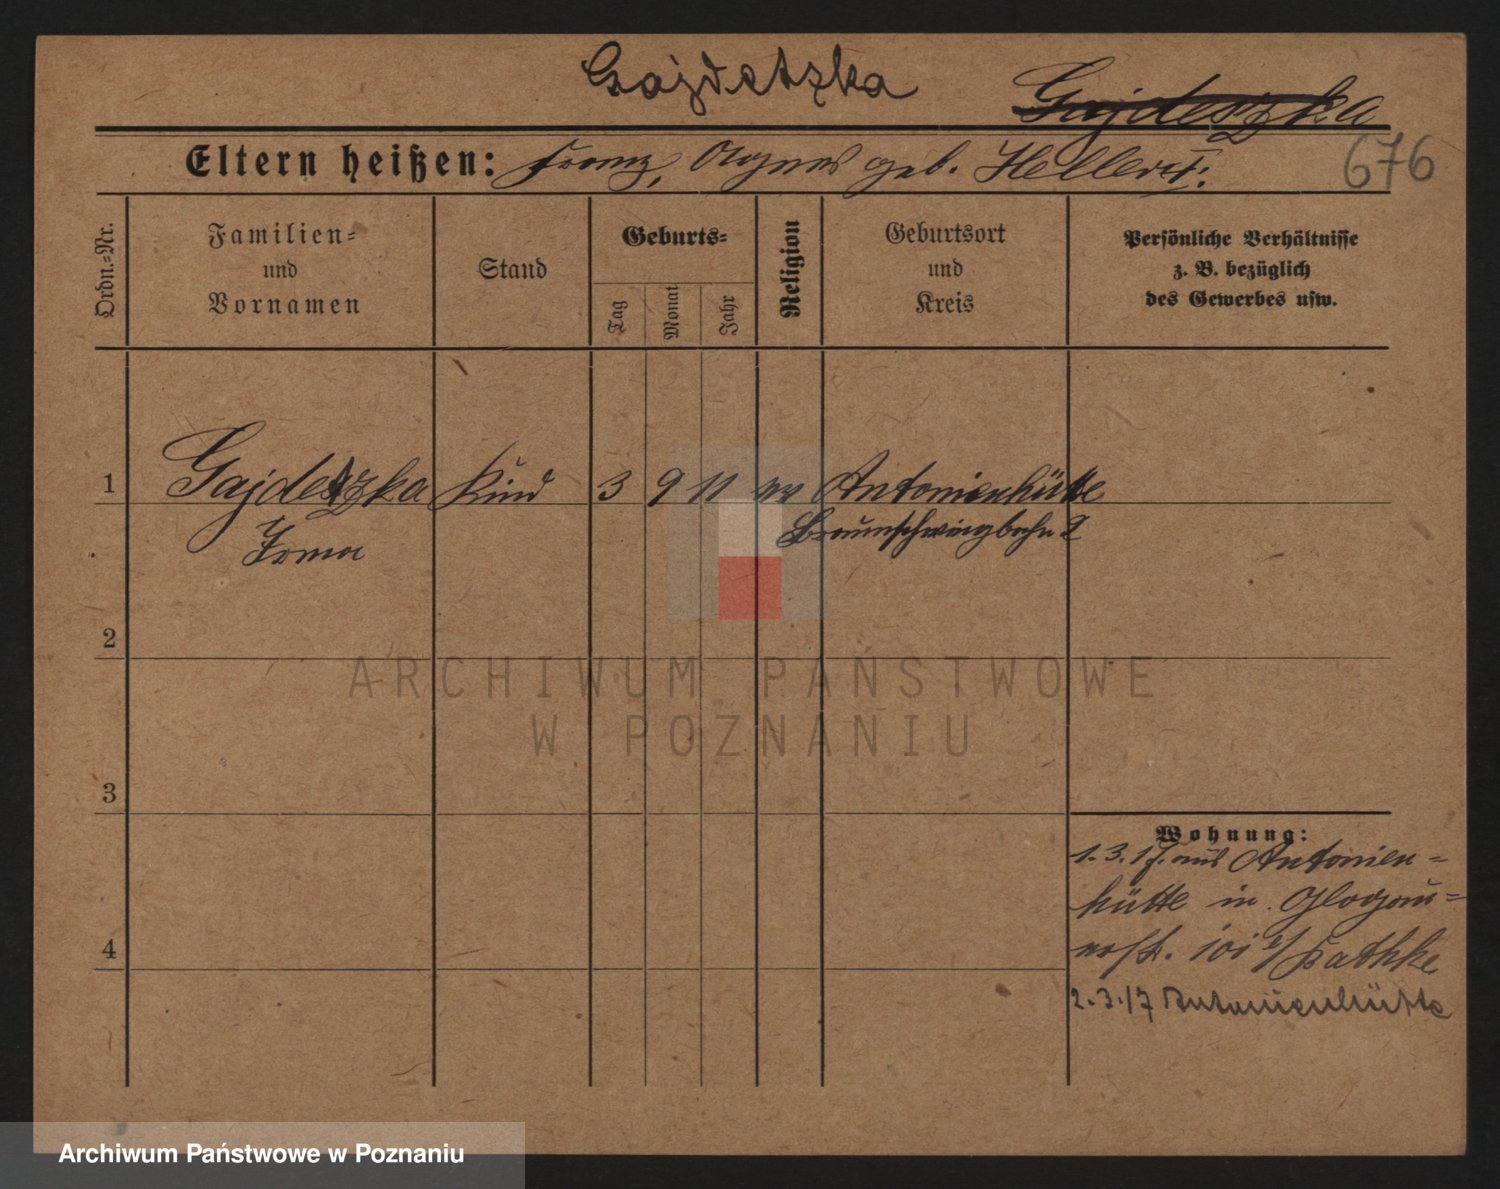 Gajdetzka
Gajdeszka
Eltern heißen: Franz, Agnes geb. Hellert.
676
Ordn.-Nr.
Familien-
und
Vornamen
Stand
Geburts-
Tag
Monat
Jahr
Religion
Geburtsort
und
Kreis
Persönliche Verhältnisse
z. B. bezüglich
des Gewerbes usw.
1 Gajdetzka Kind 3 9 11 Antonienhütte
Irma Braunschweigbahn 2
2
3
4
Wohnung:
1.3.17. aus Antonien-
hütte in Glogau-
101 Kathke
2.3.17 Antonienhütte
ARCHIWUM PAŃSTWOWE
W POZNANIU
Archiwum Państwowe w Poznaniu